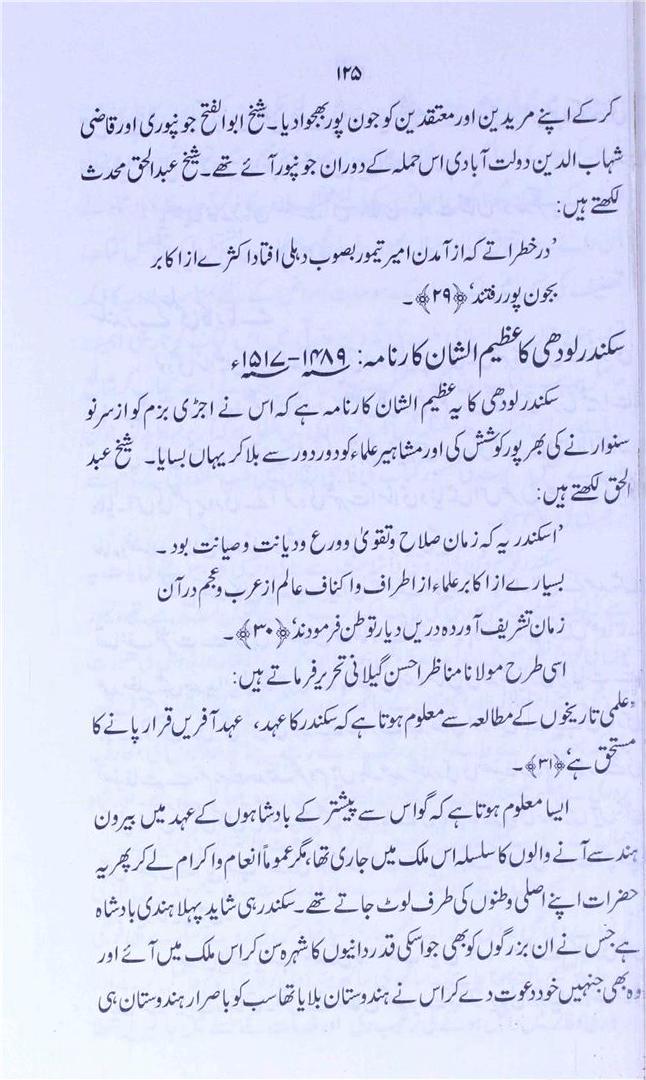 ۱۲۵
کر کے اپنے مریدین اور معتقدین کو جون پور بھجوا دیا۔ شیخ ابوالفتح جونپوری اور قاضی
شہاب الدین دولت آبادی اس حملہ کے دوران جونپور آئے تھے۔ شیخ عبدالحق محدث
لکھتے ہیں:
’درخطراتے کہ از آمدن امیر تیمور بصوب دہلی افتاد اکثرے از اکابر
بجون پور رفتند‘ ﴿۲۹﴾۔
سکندر لودھی کا عظیم الشان کارنامہ: ۱۴۸۹؁-۱۵۱۷؁ء
سکندر لودھی کا یہ عظیم الشان کارنامہ ہے کہ اس نے اجڑی بزم کو از سر نو
سنوارنے کی بھر پور کوشش کی اور مشاہیر علماء کو دور دور سے بلا کر یہاں بسایا۔ شیخ عبد
الحق لکھتے ہیں:
’اسکندریہ کہ زمان صلاح وتقویٰ وورع ودیانت وصیانت بود۔
بسیارے از اکابر علماء از اطراف واکناف عالم از عرب وعجم درآن
زمان تشریف آوردہ دریں دیار توطن فرمودند‘ ﴿۳۰﴾۔
اسی طرح مولانا مناظر احسن گیلانی تحریر فرماتے ہیں:
’علمی تاریخوں کے مطالعہ سے معلوم ہوتا ہے کہ سکندر کا عہد، عہد آفریں قرار پانے کا
مستحق ہے‘ ﴿۳۱﴾۔
ایسا معلوم ہوتا ہے کہ گو اس سے پیشتر کے بادشاہوں کے عہد میں بیرون
ہند سے آنے والوں کا سلسلہ اس ملک میں جاری تھا، مگر عموماً انعام واکرام لے کر پھر یہ
حضرات اپنے اصلی وطنوں کی طرف لوٹ جاتے تھے۔ سکندر ہی شاید پہلا ہندی بادشاہ
ہے جس نے ان بزرگوں کو بھی جو اسکی قدر دانیوں کا شہرہ سن کر اس ملک میں آئے اور
وہ بھی جنہیں خود دعوت دے کر اس نے ہندوستان بلایا تھا سب کو باصرار ہندوستان ہی